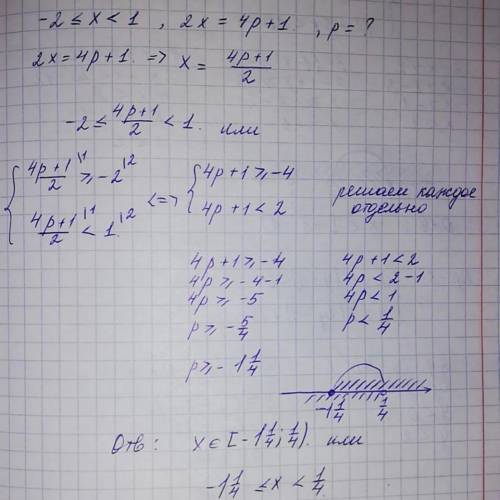 -2 ≤ x < 1 , 2x = 4p+1 , p = ?
2x = 4p+1 => x = (4p+1)/2
-2 ≤ (4p+1)/2 < 1. или
{ (4p+1)/2 \1 ≥ -2 \2 <=> { 4p+1 ≥ -4
(4p+1)/2 \1 < 1 \2 4p+1 < 2
решаем каждое
отдельно
4p+1 ≥ -4
4p ≥ -4-1
4p ≥ -5
p ≥ -5/4
p ≥ -1 1/4
4p+1 < 2
4p < 2-1
4p < 1
p < 1/4
-1 1/4 1/4
Отв: x ∈ [-1 1/4; 1/4). или
-1 1/4 ≤ x < 1/4